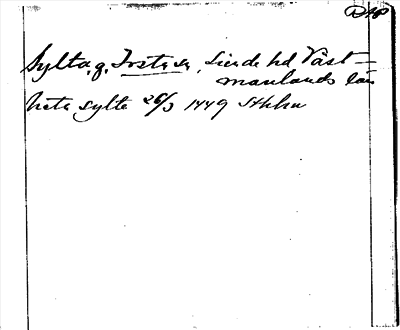 DAP
Sylta, g. Fosta sn, Linde hd Väst-
manlands län
heta sylte 26/3 1449 Sthlm